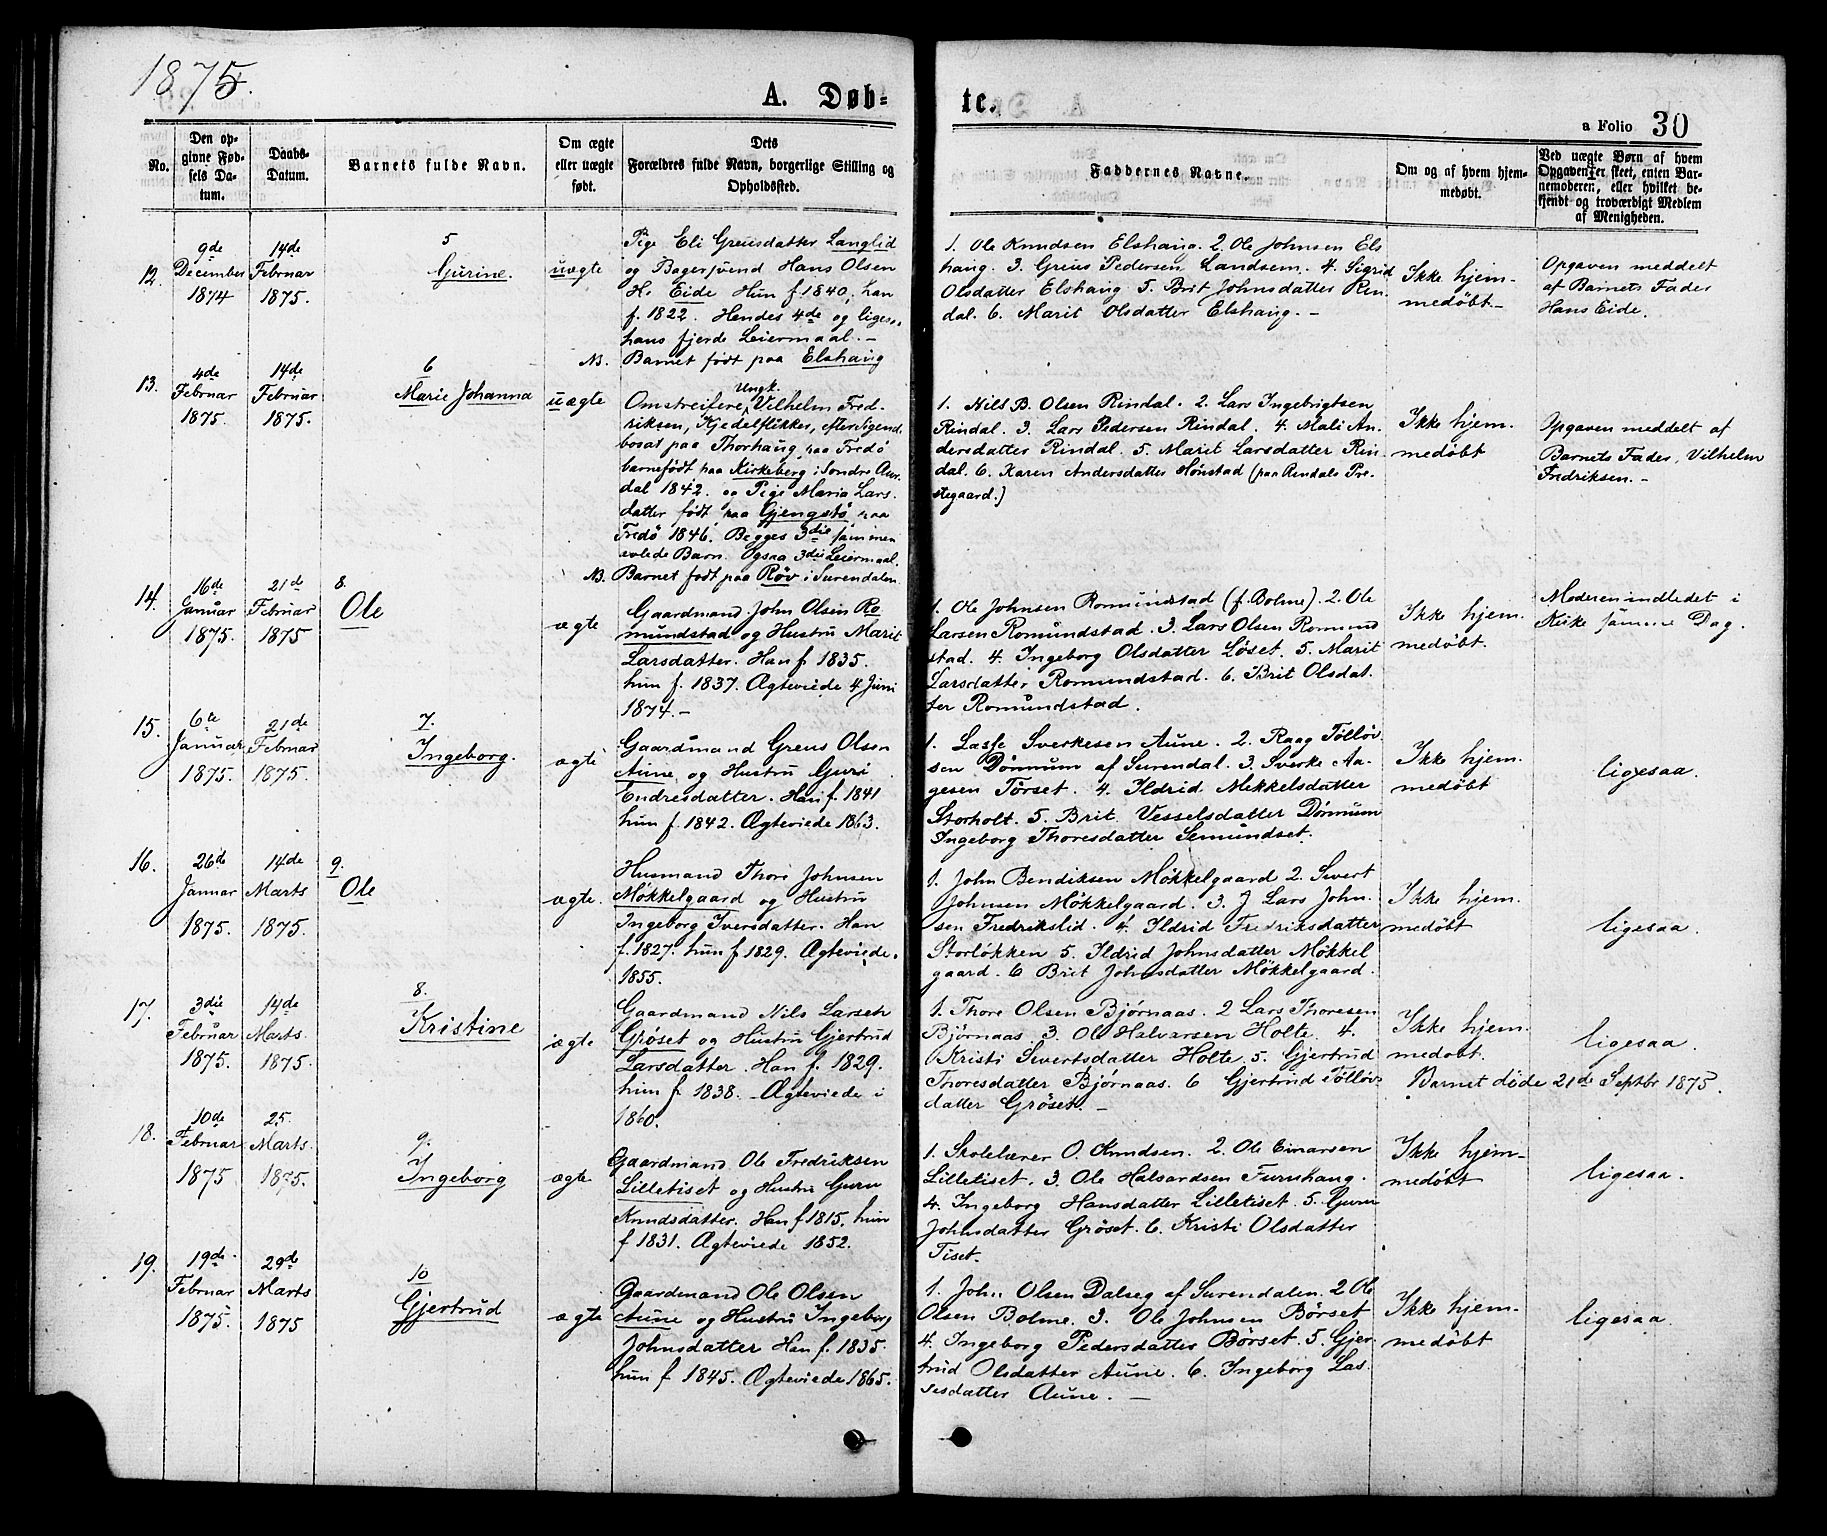 1875.
A. Døb=
te.
a Folio 30
No.
Den op-
givne Fød-
sels Da-
tum.
Daabs-
Datum.
Barnets fulde Navn.
Om ægte
eller uægte
født.
Dets
Forældres fulde Navn, borgerlige Stilling og
Opholdssted.
Faddernes Navne.
Om og af hvem hjem-
medøbt.
Ved uægte Børn af hvem
Opgaven er skeet, enten Bar-
nemoderen, eller hvilket be-
kjendt og troværdigt Medlem
af Menigheden.
12.
9de
December
1874
14de
Februar
1875.
5
Gurine.
uægte
Pige Eli Greusdatter Langlid
og Bagersvend Hans Olsen
H. Eide Hun f 1840, han
f. 1822. Hendes 4de og liges.,
hans fjerde Leiermaal. -
NB. Barnet født paa Elshaug
1. Ole Knudsen Elshaug. 2. Ole Johnsen Els
haug. 3. Greus Pedersen Landsem. 4. Sigrid
Olsdatter Elshaug 5. Brit Johnsdatter Rin-
dal. 6. Marit Olsdatter Elshaug. -
Ikke hjem-
medøbt.-
Opgaven meddelt
af Barnets Fader
Hans Eide.
13.
4de
Februar
1875.
14de
Februar
1875.
6
Marie Johanna
uægte
Ungk.
Omstreifere, Vilhelm Fred-
riksen, Kjedelflikker, efter Sigend.
bosat paa Thorhaug paa Fredø
barnefødt paa Kirkeberg i Søndre Aur-
dal 1842. og Pige Maria Lars-
datter født paa Gjengstø paa
Fredø 1846. Begges 3die sammen
avlede Barn. Ogsaa 3die Leiermaal.
NB. Barnet født paa Røv i Surendalen
1. Nils B. Olsen Rindal. 2. Lars Ingebrigtsen
Rindal. 3. Lars Pedersen Rindal. 4. Mali An-
dersdatter Rindal. 5. Marit Larsdatter Rin-
dal. 6. Karen Andersdatter Hønstad (paa Rindals Pre-
stegaard.)
Ikke hjem-
medøbt
Opgaven meddelt af
Barnets Fader, Vilhelm
Fredriksen. -
14.
16de
Januar
1875.
21de
Februar
1875
8.
Ole
ægte
Gaardmand John Olsen Ro
mundstad og Hustru Marit
Larsdatter. Han f 1835.
hun f. 1837. Ægteviede 4 Juni
1874.-
1. Ole Johnsen Romundstad (f. Bolme). 2. Ole
Larsen Romundstad. 3. Lars Olsen Romund
stad. 4. Ingeborg Olsdatter Løset. 5. Marit
Larsdatter Romundstad. 6. Brit Olsdat-
ter Romundstad.
Ikke hjem-
medøbt.
Moderen indledet i
Kirke samme Dag.
15.
6te
Januar
1875.
21de
Februar
1875.
7.
Ingeborg.
ægte
Gaardmand Greus Olsen
Aune og Hustru Guri
Endresdatter. Han f. 1841
hun f. 1842. Ægteviede 1863.
1. Lasse Sverkesen Aune. 2. Raag Tølløv-
sen Dønnum af Surendal. 3. Sverke Aa-
gesen Tørset. 4. Ildrid Mekkelsdatter
Storholt. 5. Brit Vesselsdatter Dønnum
Ingeborg Thoresdatter Semundset.
Ikke hjem-
medøbt
ligesaa.
16.
26de
Januar
1875.
14de
Marts
1875.
9.
Ole
ægte.
Husmand Thore Johnsen
Møkkelgaard og Hustru
Ingeborg Iversdatter. Han
f. 1827. hun f 1829. Ægteviede.
1855.
1. John Bendiksen Møkkelgaard 2. Sivert
Johnsen Møkkelgaard. 3. J Lars John-
sen Fredrikslid. 4. Ildrid Fredriksdatter
Storløkken 5. Ildrid Johnsdatter Møkkel
gaard. 6 Brit Johnsdatter Møkkelgaard.
Ikke hjem-
medøbt
ligesaa.
17.
3die
Februar
1875.
14de
Marts.
1875.
8.
Kristine
ægte
Gaardmand Nils Larsen
Grøset og Hustru Gjertrud
Larsdatter. Han f. 1829.
hun f. 1838. Ægteviede i
1860.
1. Thore Olsen Bjørnaas. 2 Lars Thoresen
Bjørnaas 3. Ole Halvarsen Holte. 4.
Kristi Sivertsdatter Holte. 5. Gjertrud
Thoresdatter Bjørnaas. 6 Gjertrud Tølløvs-
datter Grøset. -
Ikke hjem-
medøbt.
ligesaa.
Barnet døde 21de Septbr 1875.
18.
10de
Februar
1875
25.
Marts.
1875.
9.
Ingeborg
ægte
Gaardmand Ole Fredriksen
Lilletiset og Hustru Guru
Knudsdatter. Han f 1815, hun
f 1831. Ægteviede 1852.
1. Skolelærer O. Knudsen. 2. Ole Einarsen
Lilletiset. 3. Ole Halvardsen Furuhaug.
4. Ingeborg Hansdatter Lilletiset. 5. Guru
Johnsdatter Grøset. 6. Kristi Olsdatter
Tiset.
Ikke hjem-
medøbt
ligesaa.
19.
19de
Februar
1875.
29de
Marts
1875
10
Gjertrud
ægte
Gaardmand Ole Olsen
Aune og Hustru Ingeborg
Johnsdatter Han f. 1835.
hun f. 1845. Ægteviede 1865.
1. John Olsen Dalseg af Surendalen. 2 Ole
Olsen Bolme. 3. Ole Johnsen Børset
4. Ingeborg Pedersdatter Børset. 5. Gjer-
trud Olsdatter Aune. 6. Ingeborg Las-
sesdatter Aune. -
Ikke hjem-
medøbt
ligesaa.